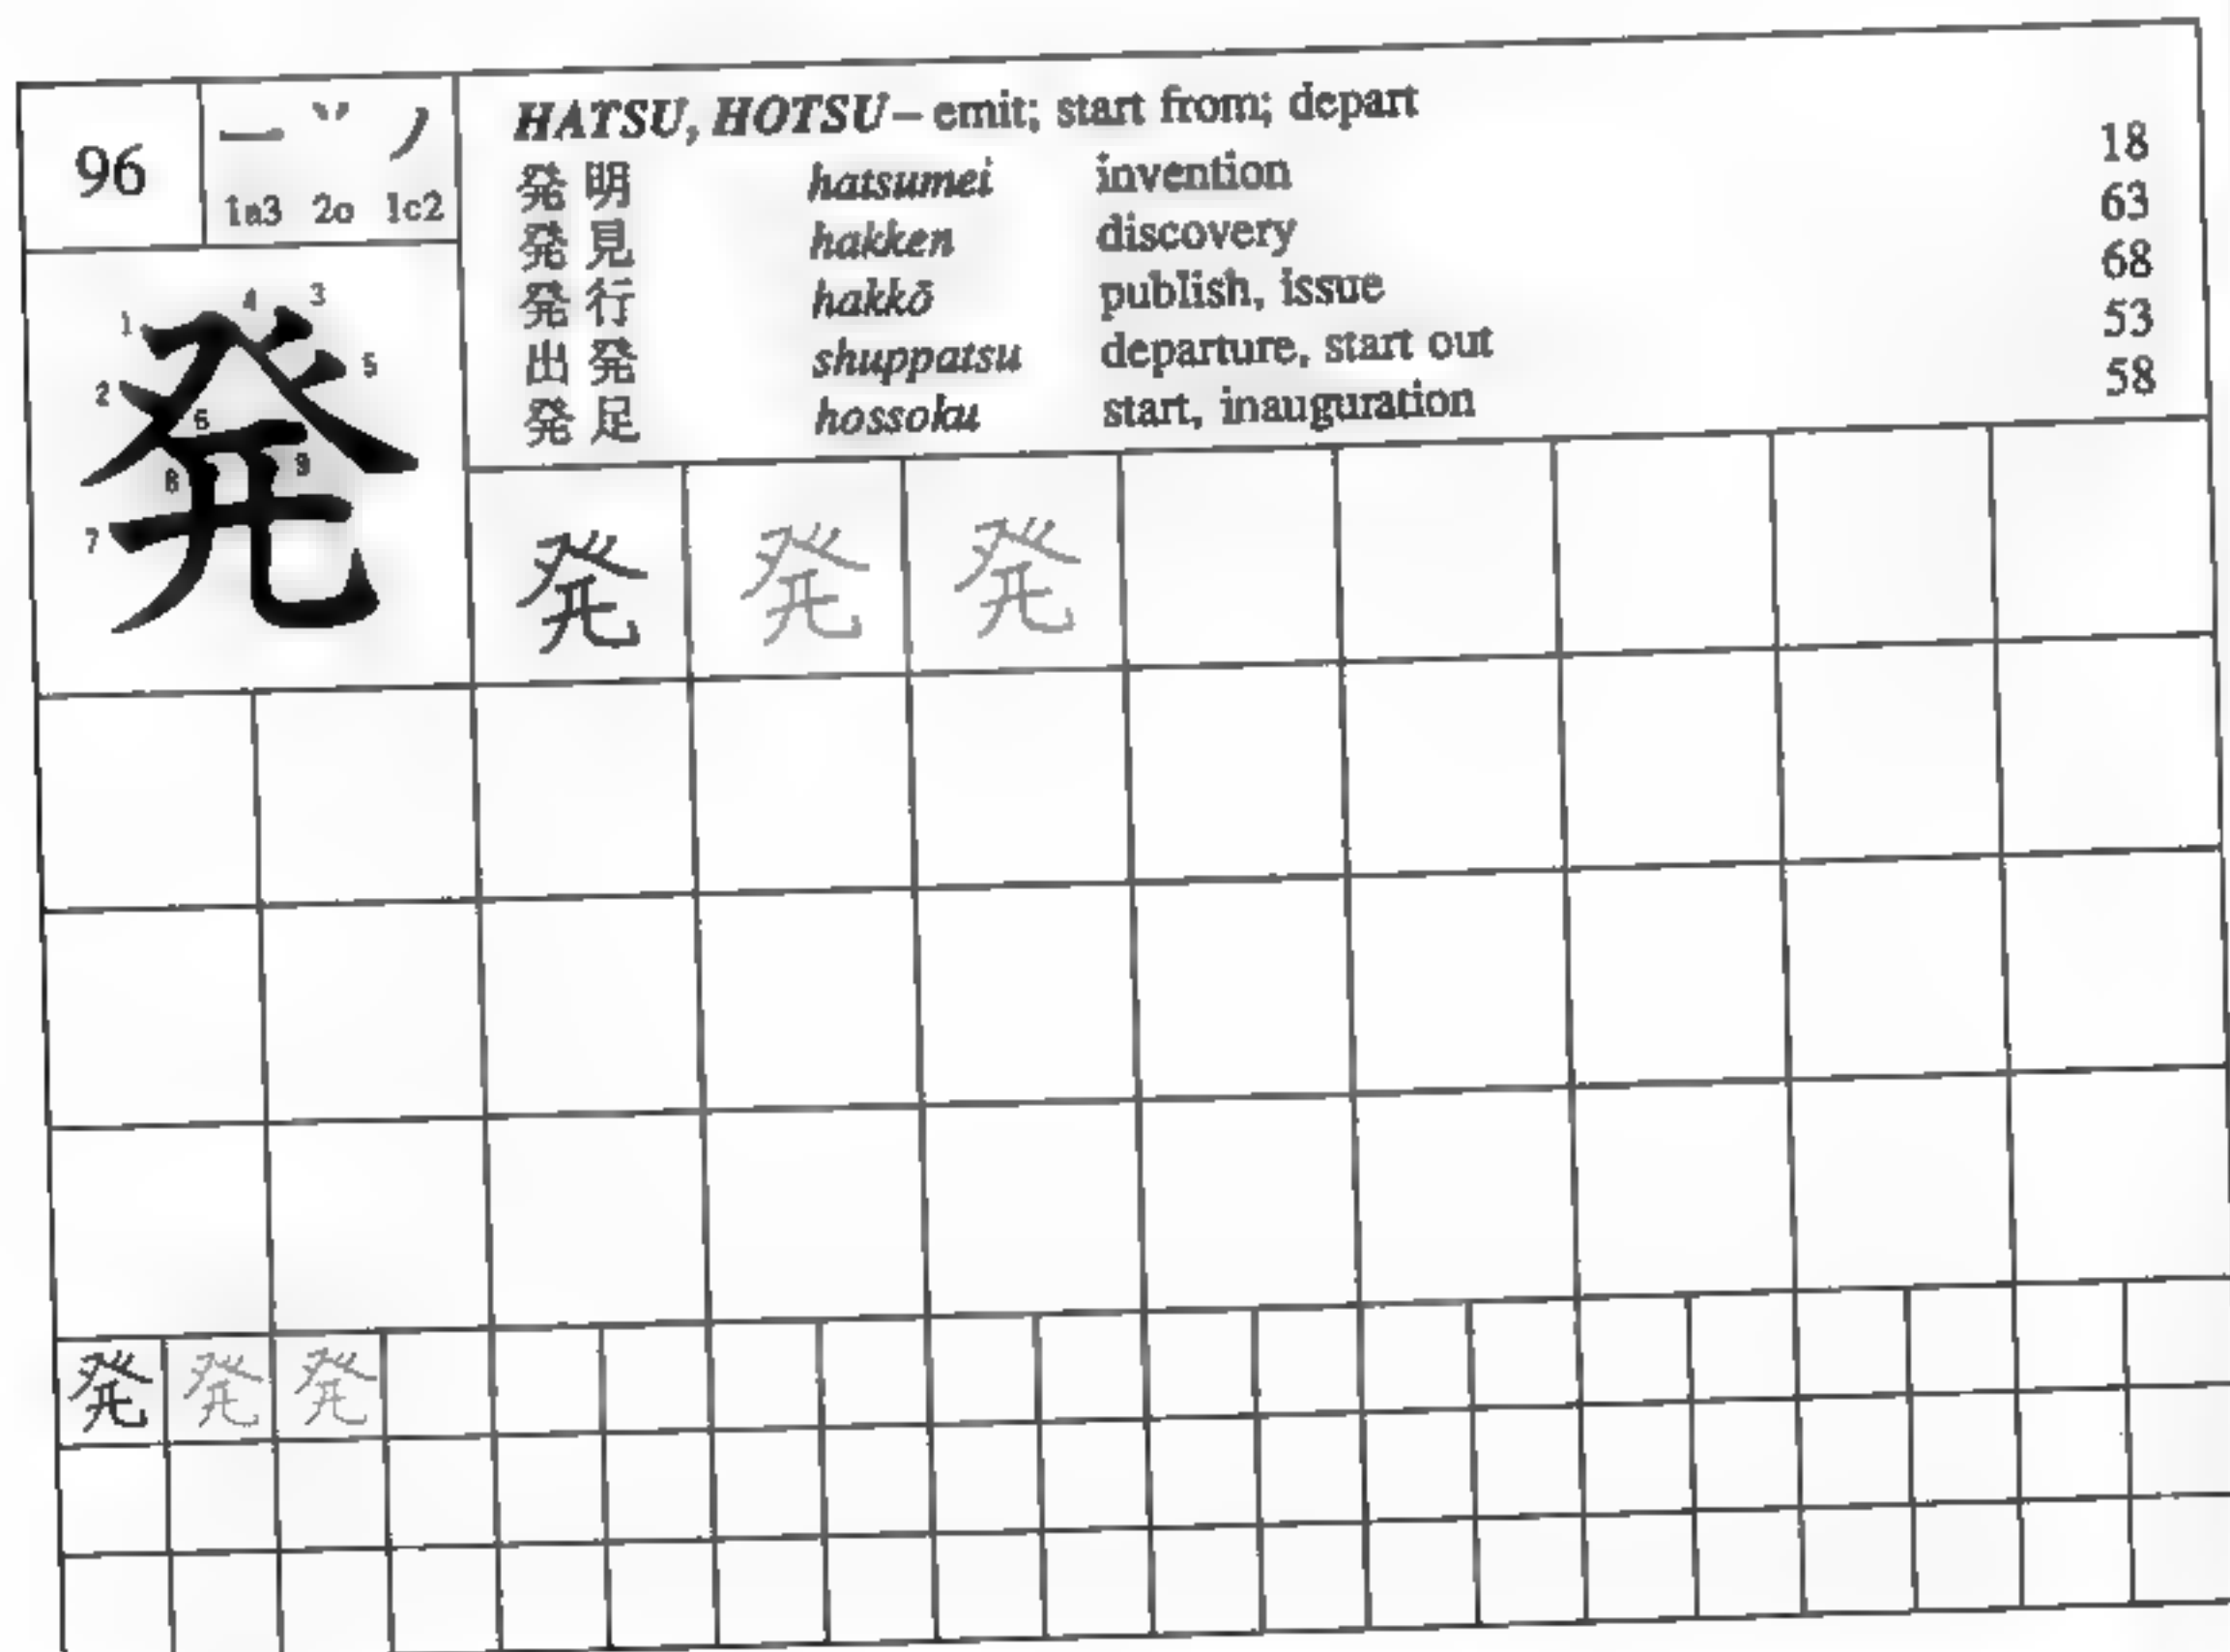 96
一 丷 ノ
1a3 2o 1c2
HATSU, HOTSU – emit; start from; depart
発明 hatsumei invention 18
発見 hakken discovery 63
発行 hakkō publish, issue 68
出発 shuppatsu departure, start out 53
発足 hossoku start, inauguration 58
1 2 3 4 5 6 7 8 9
発
発 発 発
発 発 発